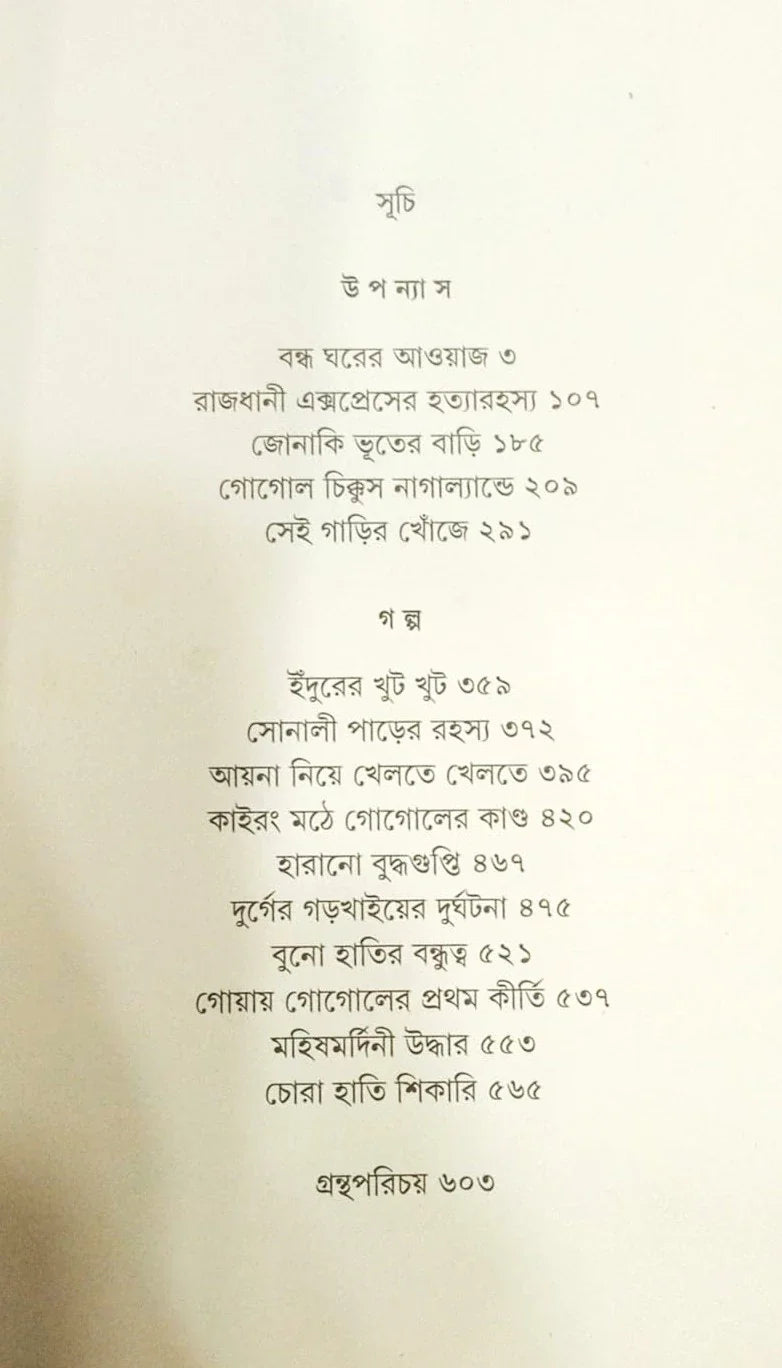 সূচি
উ প ন্যা স
বন্ধ ঘরের আওয়াজ ৩
রাজধানী এক্সপ্রেসের হত্যারহস্য ১০৭
জোনাকি ভূতের বাড়ি ১৮৫
গোগোল চিক্কুস নাগাল্যান্ডে ২০৯
সেই গাড়ির খোঁজে ২৯১
গ ল্প
ইঁদুরের খুট খুট ৩৫৯
সোনালী পাড়ের রহস্য ৩৭২
আয়না নিয়ে খেলতে খেলতে ৩৯৫
কাইরং মঠে গোগোলের কাণ্ড ৪২০
হারানো বুদ্ধগুপ্তি ৪৬৭
দুর্গের গড়খাইয়ের দুর্ঘটনা ৪৭৫
বুনো হাতির বন্ধুত্ব ৫২১
গোয়ায় গোগোলের প্রথম কীর্তি ৫৩৭
মহিষমর্দিনী উদ্ধার ৫৫৩
চোরা হাতি শিকারি ৫৬৫
গ্রন্থপরিচয় ৬০৩